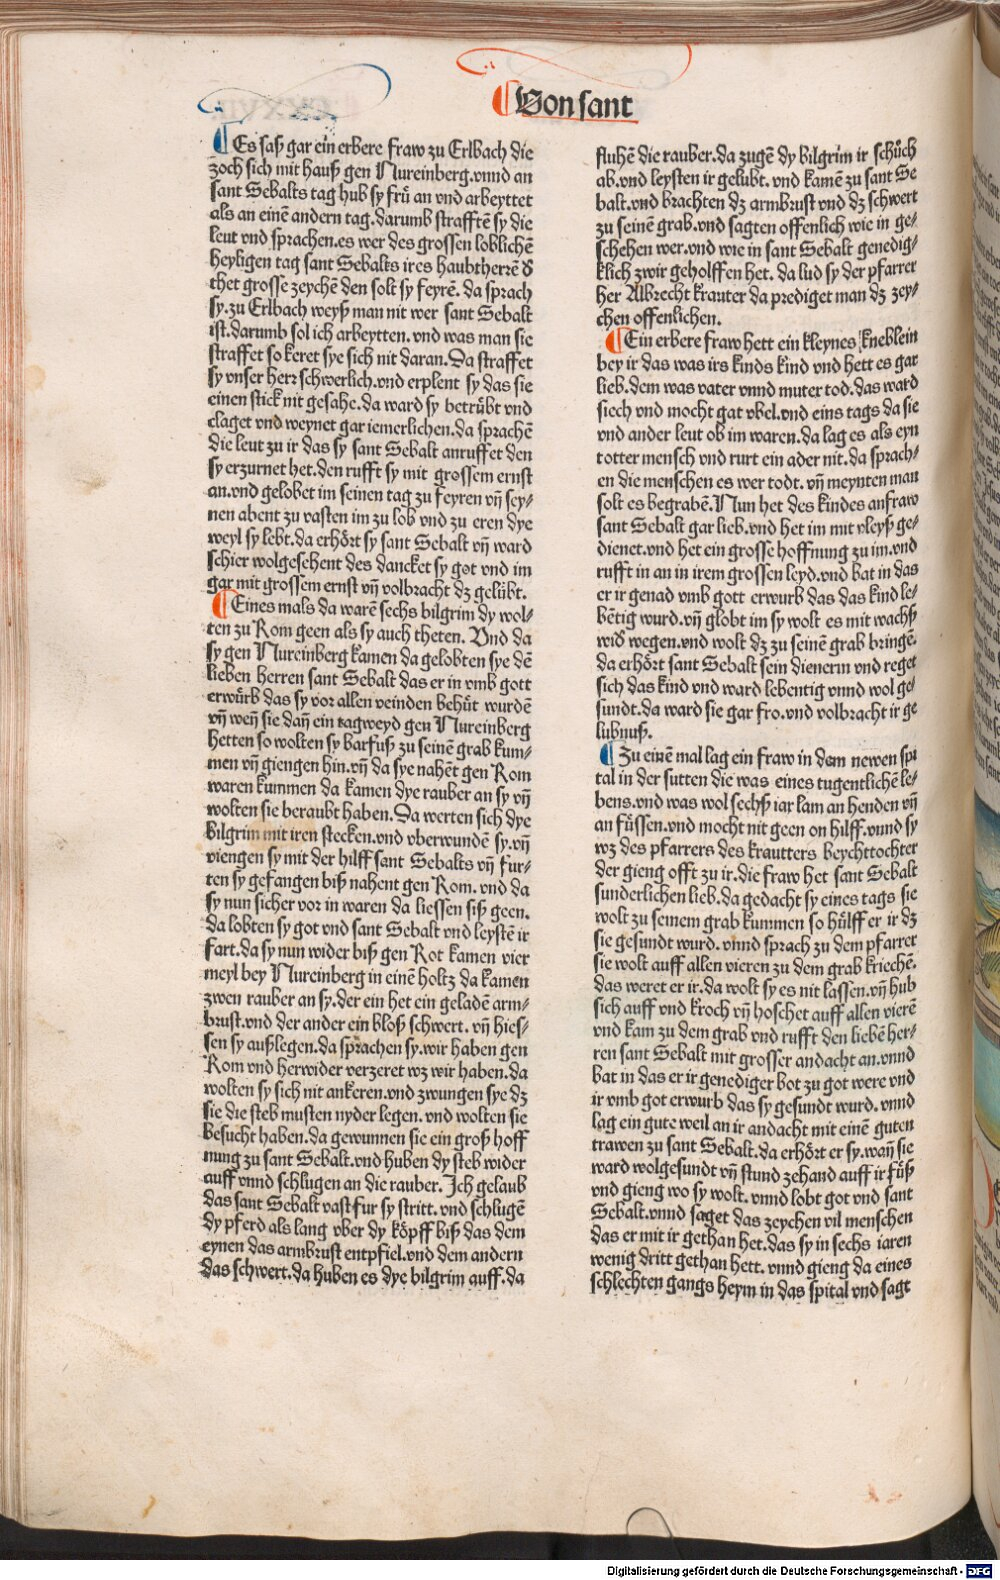 Von sant
Es saß gar ein erbere fraw zu Erlbach die
zoch sich mit hauß gen Nureinberg.vnnd an
sant Sebalts tag hub sy frů an vnd arbeyttet
als an einē andern tag.darumb strafftē sy die
leut vnd sprachen.es wer des grossen loblichē
heyligen tag sant Sebalts ires haubtherrē d̕
thet grosse zeychē den solt sy feyrē. da sprach
sy.zu Erlbach weyß man nit wer sant Sebalt
ist.darumb sol ich arbeytten. vnd was man sie
straffet so keret sye sich nit daran. Da straffet
sy vnser herr schwerlich.vnd erplent sy das sie
einen stick nit gesahe.da ward sy betrübt vnd
claget vnd weynet gar iemerlichen.da sprachē
die leut zu ir das sy sant Sebalt anruffet den
sy erzurnet het.den rufft sy mit grossem ernst
an.vnd gelobet im seinen tag zu feyren vn̄ sey⸗
nen abent zu vasten im zu lob vnd zu eren dye
weyl sy lebt.da erhört sy sant Sebalt vn̄ ward
schier wolgesehent des dancket sy got vnd im
gar mit grossem ernst vn̄ volbracht dz gelübt.
Eines mals da warē sechs bilgrim dy wol⸗
ten zu Rom geen als sy auch theten. Vnd da
sy gen Nureinberg kamen da gelobten sye dē
lieben herren sant Sebalt das er in vmb gott
erwürb das sy vor allen veinden behüt wurdē
vn̄ wen̄ sie dan̄ ein tagweyd gen Nureinberg
hetten so wolten sy barfuß zu seinē grab kum⸗
men vn̄ giengen hin.vn̄ da sye nahēt gen Rom
waren kummen da kamen dye rauber an sy vn̄
wolten sie beraubt haben. Da werten sich dye
bilgrim mit iren stecken.vnd vberwundē sy.vn̄
viengen sy mit der hilff sant Sebalts vn̄ fur⸗
ten sy gefangen biß nahent gen Rom. vnd da
sy nun sicher vor in waren da liessen siß geen.
da lobten sy got vnd sant Sebalt vnd leystē ir
fart.da sy nun wider biß gen Rot kamen vier
meyl bey Nureinberg in einē holtz da kamen
zwen rauber an sy.der ein het ein geladē arm⸗
brust.vnd der ander ein bloß schwert. vn̄ hies⸗
sen sy außlegen.da sprachen sy.wir haben gen
Rom vnd herwider verzeret wz wir haben.da
wolten sy sich nit ankeren.vnd zwungen sye dz
sie die steb musten nyder legen. vnd wolten sie
besucht haben.da gewunnen sie ein groß hoff
nung zu sant Sebalt.vnd huben dy steb wider
auff vnnd schlugen an die rauber. Ich gelaub
das sant Sebalt vast fur sy stritt. vnd schlugē
dy pferd als lang vber dy köpff biß das dem
eynen das armbrust entpfiel.vnd dem andern
das schwert.da huben es dye bilgrim auff.da
fluhē die rauber.da zugē dy bilgrim ir schůch
ab.vnd leysten ir gelubt. vnd kamē zu sant Se
balt.vnd brachten dz armbrust vnd dz schwert
zu seinē grab.vnd sagten offenlich wie in ge⸗
schehen wer.vnd wie in sant Sebalt genedig⸗
klich zwir geholffen het. da lud sy der pfarrer
her Albrecht krauter da prediget man dz zey⸗
chen offenlichen.
Ein erbere fraw hett ein kleynes kneblein
bey ir das was irs kinds kind vnd hett es gar
lieb.dem was vater vnnd muter tod.das ward
siech vnd mocht gat vbel.vnd eins tags da sie
vnd ander leut ob im waren.da lag es als eyn
totter mensch vnd rurt ein ader nit.da sprach⸗
en die menschen es wer todt. vn̄ meynten man
solt es begrabē.Nun het des kindes anfraw
sant Sebalt gar lieb.vnd het im mit vleyß ge⸗
dienet.vnd het ein grosse hoffnung zu im.vnd
rufft in an in irem grossen leyd.vnd bat in das
er ir genad vmb gott erwurb das das kind le⸗
bētig wurd.vn̄ globt im sy wolt es mit wachß
wid̕ wegen.vnd wolt dz zu seinē grab bringē.
da erhört sant Sebalt sein dienerin vnd reget
sich das kind vnd ward lebentig vnnd wol ge⸗
sundt.da ward sie gar fro.vnd volbracht ir ge
lubnuß.
Zu einē mal lag ein fraw in dem newen spi
tal in der sutten die was eines tugentlichē le⸗
bens.vnd was wol sechß iar lam an henden vn̄
an füssen.vnd mocht nit geen on hilff.vnnd sy
wz des pfarrers des krautters beychttochter
der gieng offt zu ir.die fraw het sant Sebalt
sunderlichen lieb.da gedacht sy eines tags sie
wolt zu seinem grab kummen so hülff er ir dz
sie gesundt wurd. vnnd sprach zu dem pfarrer
sie wolt auff allen vieren zu dem grab kriechē.
das weret er ir.da wolt sy es nit lassen.vn̄ hub
sich auff vnd kroch vn̄ hoschet auff allen vierē
vnd kam zu dem grab vnd rufft den liebē her⸗
ren sant Sebalt mit grosser andacht an.vnnd
bat in das er ir genediger bot zu got were vnd
ir vmb got erwurb das sy gesundt wurd. vnnd
lag ein gute weil an ir andacht mit einē guten
trawen zu sant Sebalt.da erhört er sy.wan̄ sie
ward wolgesundt vn̄ stund zehand auff ir füß
vnd gieng wo sy wolt. vnnd lobt got vnd sant
Sebalt.vnnd saget das zeychen vil menschen
das er mit ir gethan het.das sy in sechs iaren
wenig dritt gethan hett. vnnd gieng da eines
schlechten gangs heym in das spital vnd sagt
Digitalisierung gefördert durch die Deutsche Forschungsgemeinschaft - DFG